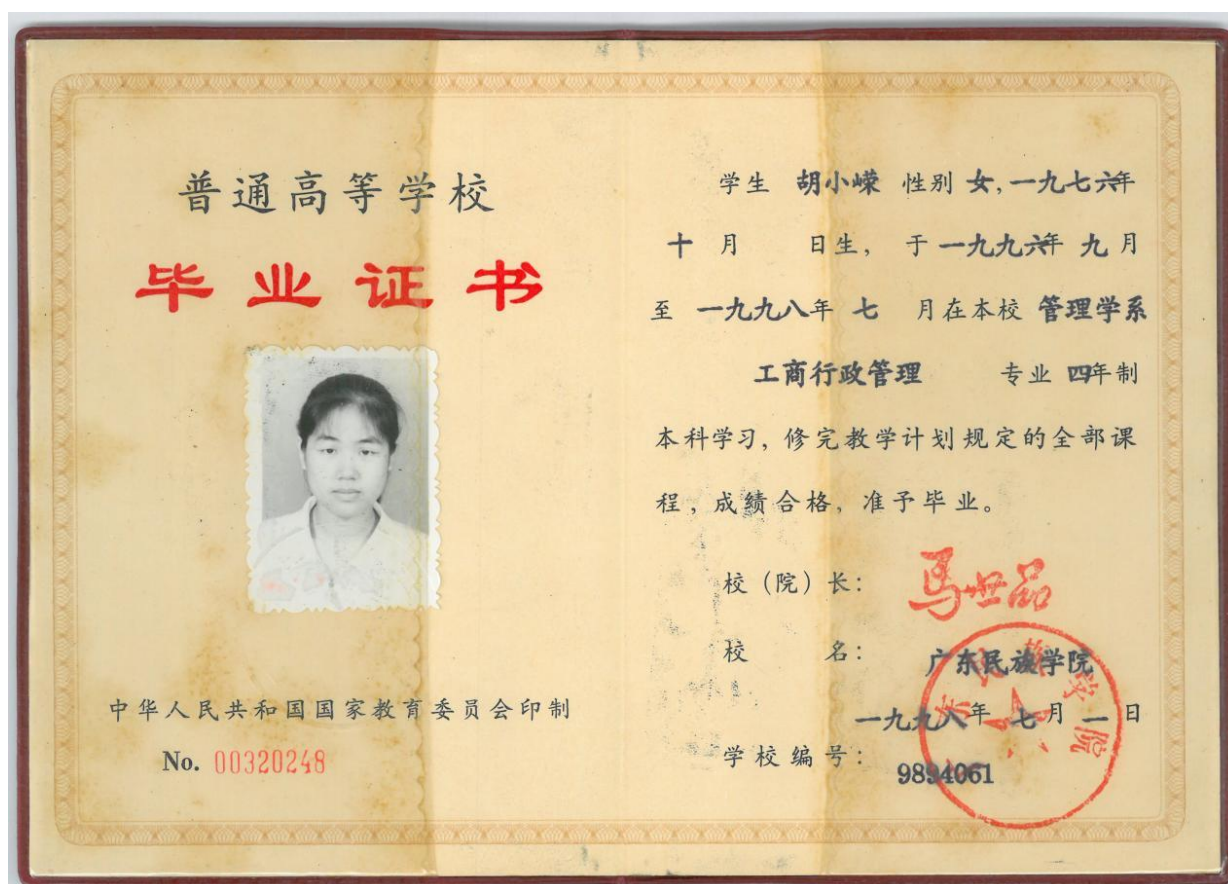 普通高等学校
毕业证书
中华人民共和国国家教育委员会印制
No. 00320248
学生 胡小嵘 性别 女,一九七六年
十 月 日生, 于 一九九六年 九 月
至 一九九八年 七 月在本校 管理学系
工商行政管理 专业 四年制
本科学习, 修完教学计划规定的全部课
程, 成绩合格, 准予毕业。
校(院)长: 马世品
校 名: 广东民族学院
一九九八年 七 月 一 日
学校编号: 9894061